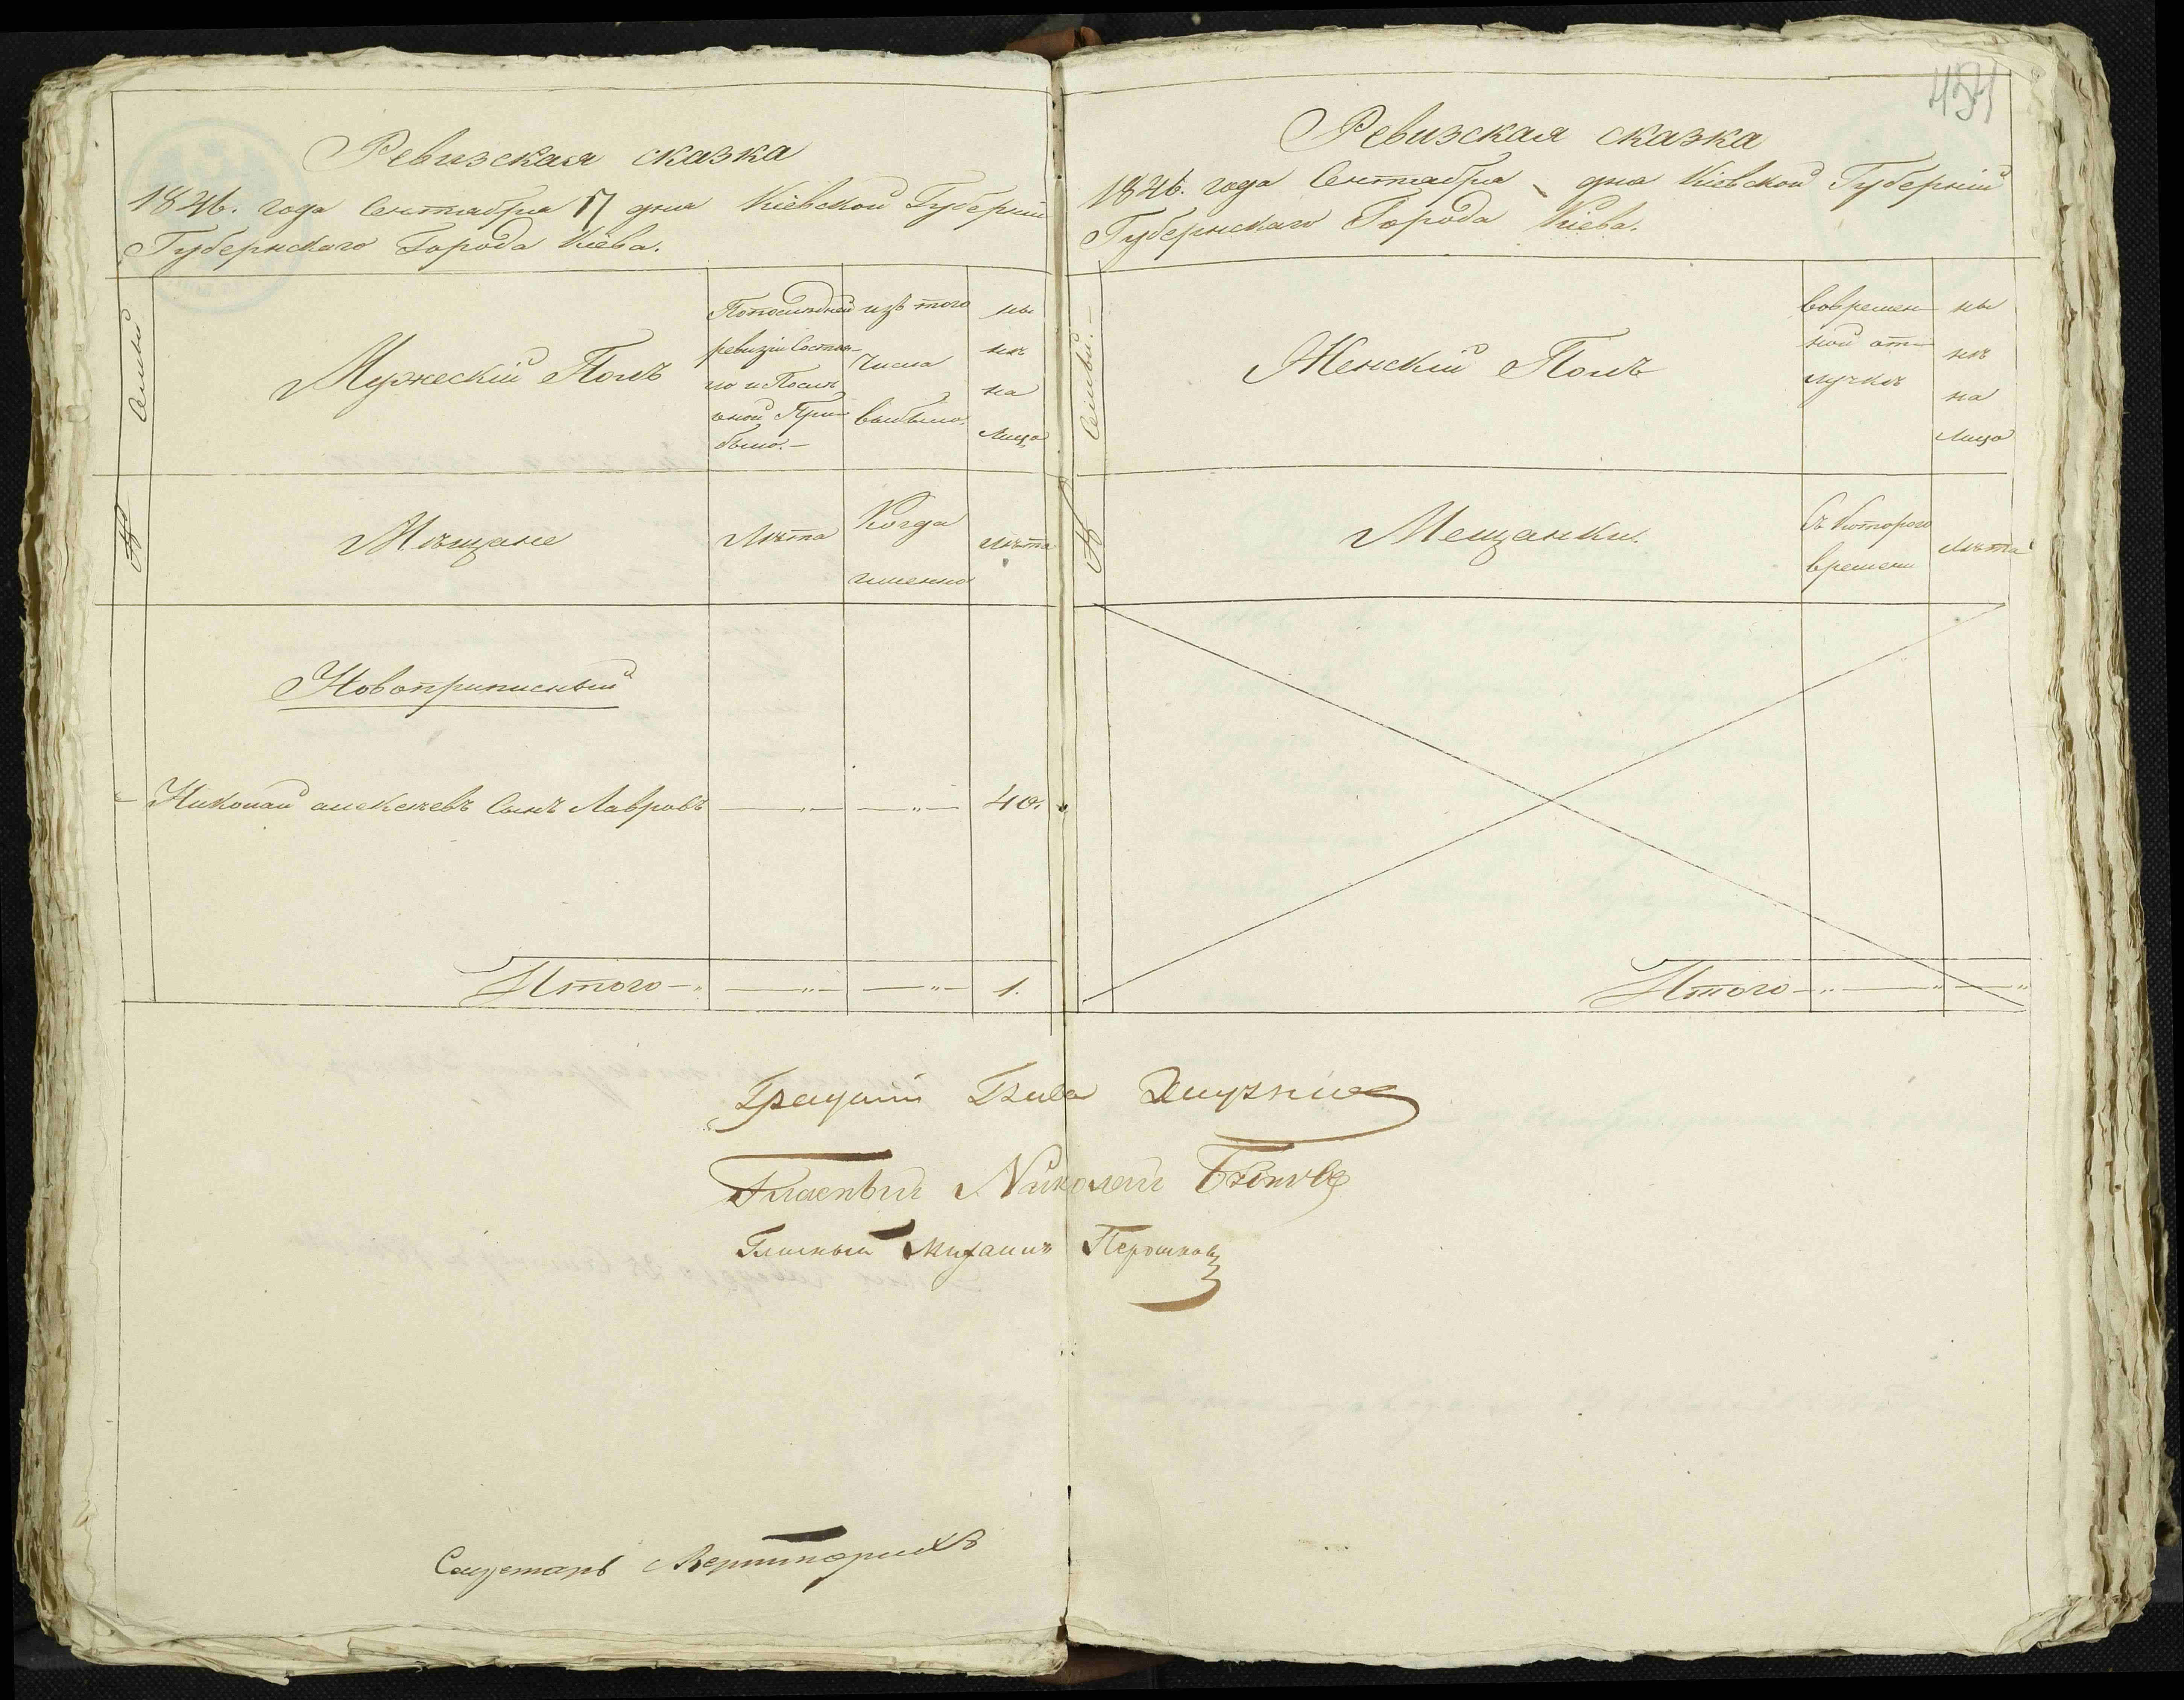 Ревизская сказка
1846. года Сентября 17 дня Кіевской Губерніи
Губернскаго Города Кіева.
№ Семьи
Мужескій Полъ
Попоследней
ревизіи Состоя-
ло и После
оной При-
было.-
изъ того
Числа
выбыло.
ны
нѣ
на
Лицо
Мѣщане
Лѣта
Когда
именно
лѣта
Новоприписный
Николай алексѣевъ Сынъ Лавровъ — „ — — „ — 40.
Итого — „ — „ — — „ — 1.
454
Ревизская сказка
1846. года Сентября дна Кіевской Губерніи
Губернскаго Города Кіева.
№ Семьи.-
Женскій Полъ
вовремен-
ной от-
лучкѣ
ны
нѣ
на
Лицо
Мещанки.
Съ Котораго
времени
Лѣта
Итого — „ — „ — „
Градскій Глава
Гласный Николай
Гласный Михаилъ Перошковъ
Секретарь